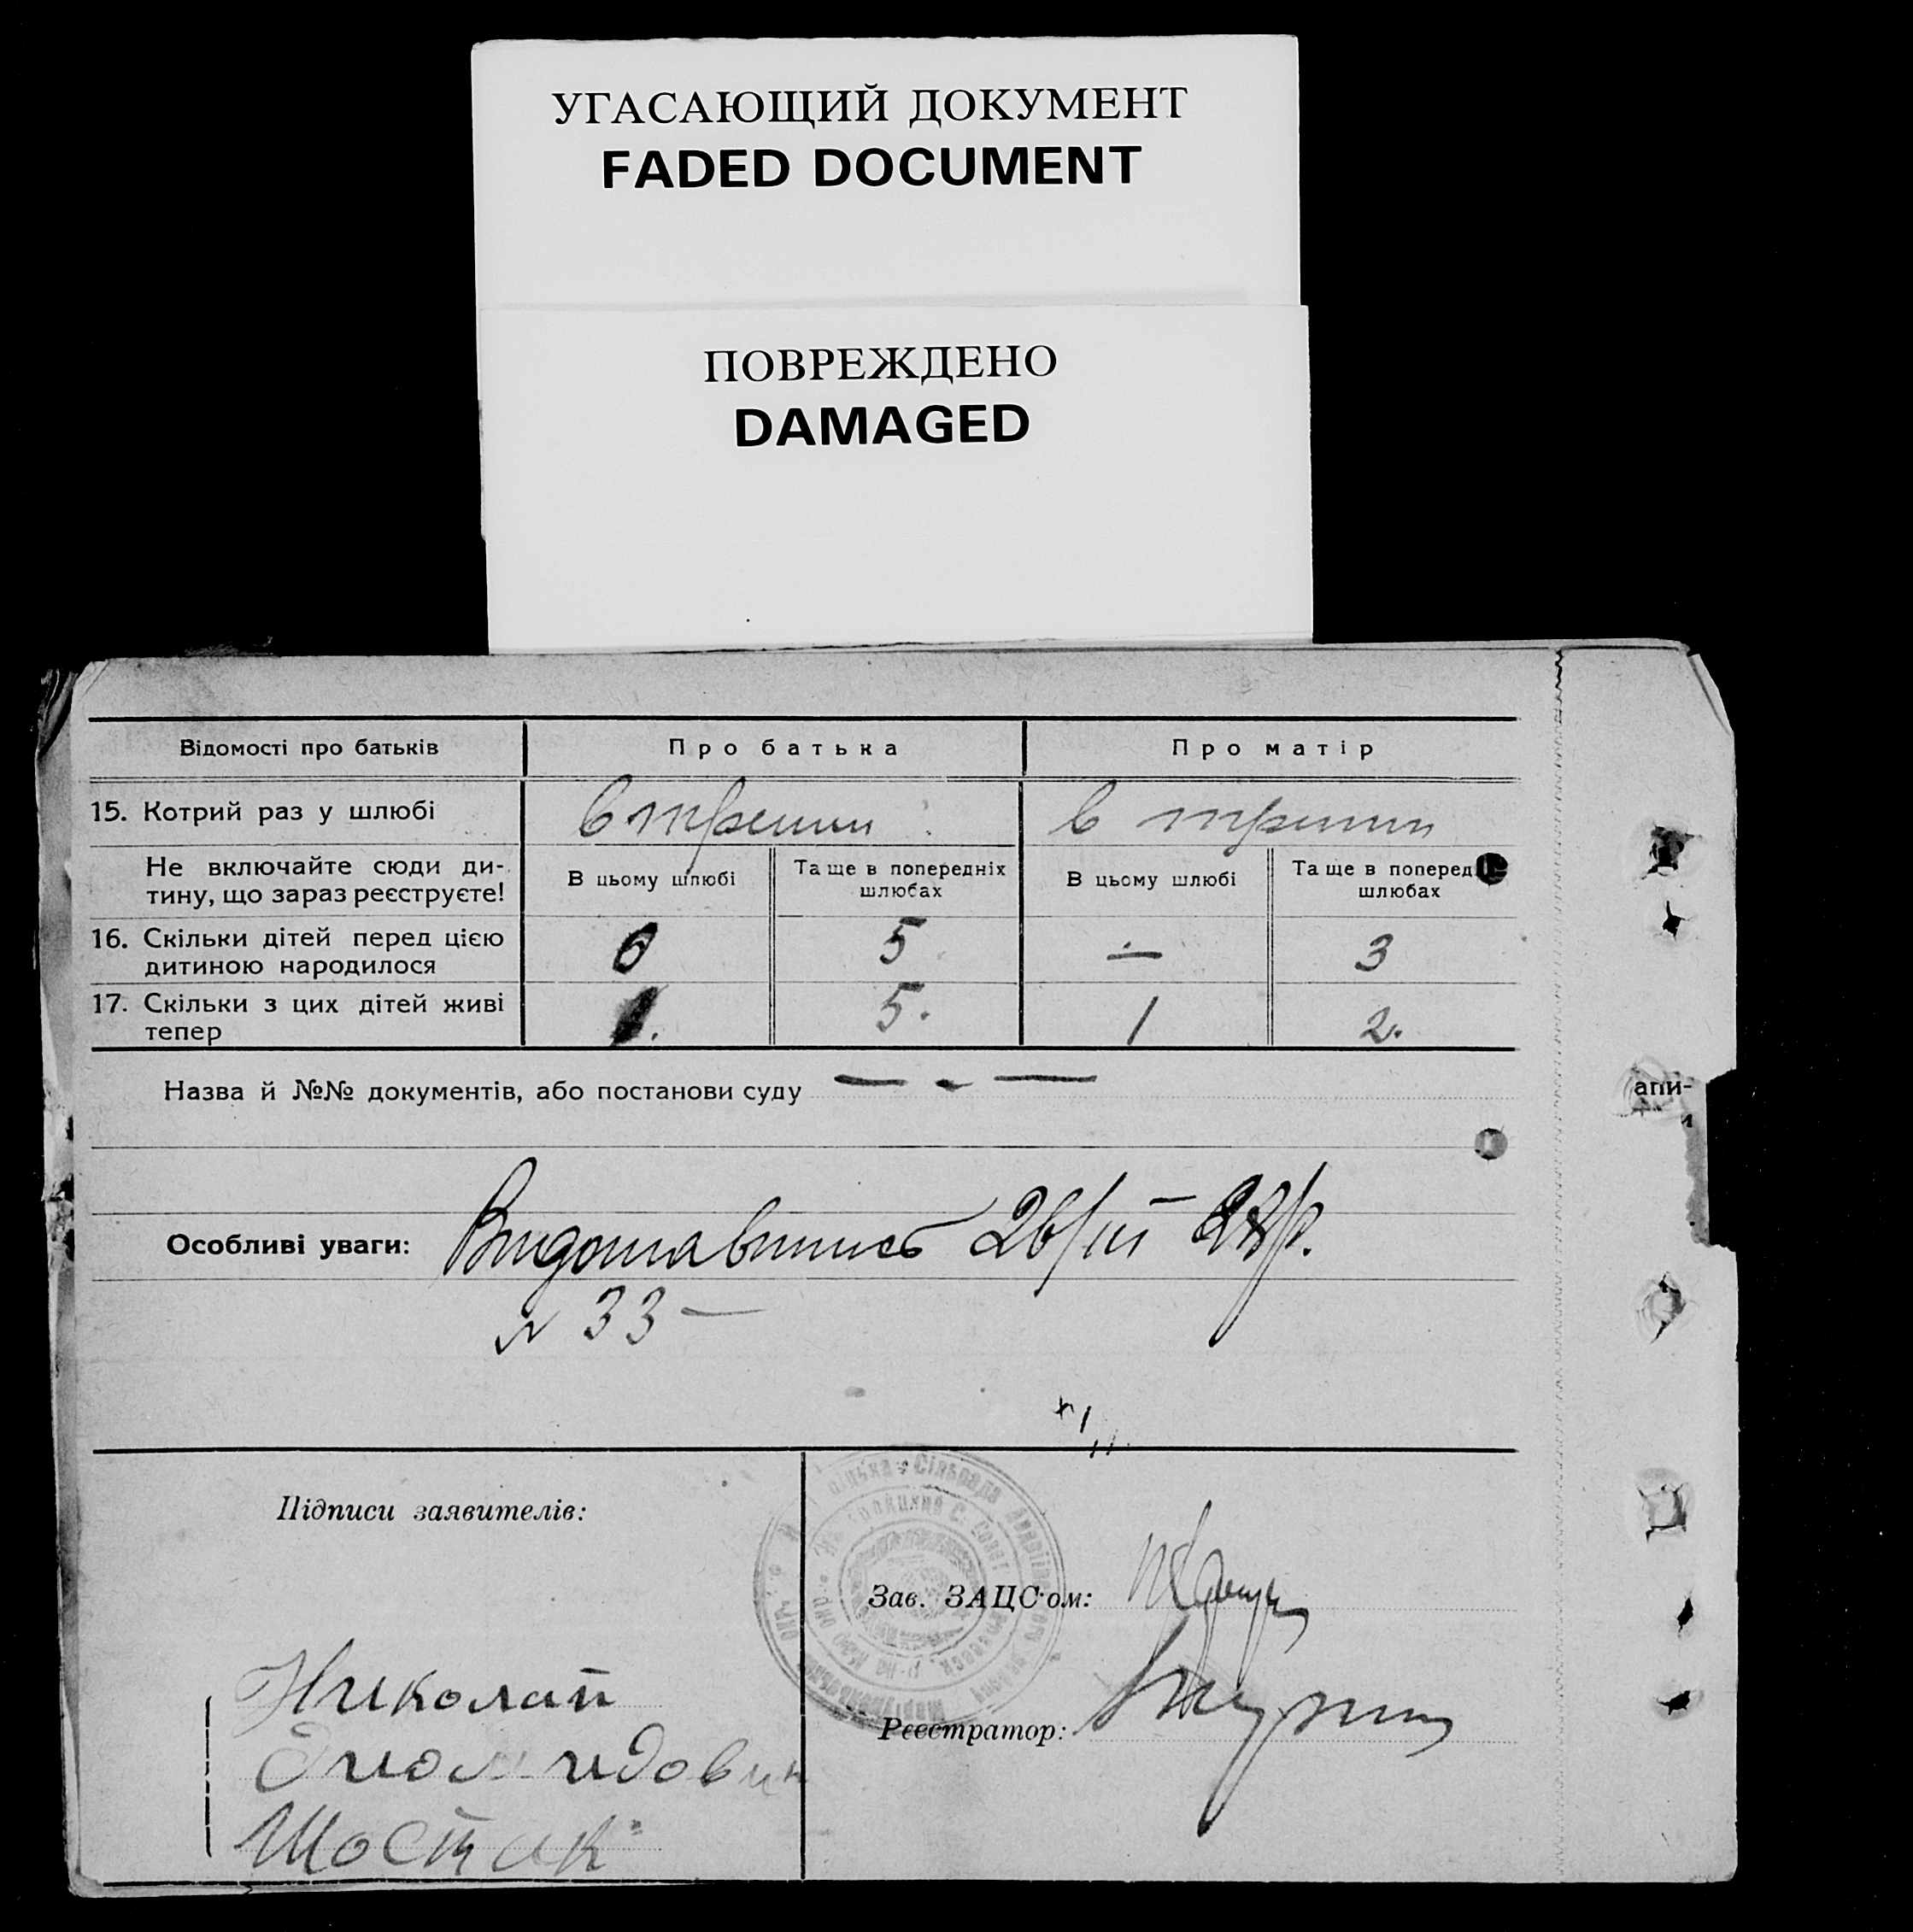 УГАСАЮЩИЙ ДОКУМЕНТ
FADED DOCUMENT
ПОВРЕЖДЕНО
DAMAGED
Відомості про батьків
Про батька
Про матір
15. Котрий раз у шлюбі
в третии
в третии
Не включайте сюди ди-
тину, що зараз реєструєте!
В цьому шлюбі
Та ще в попередніх
шлюбах
В цьому шлюбі
Та ще в поперед
шлюбах
16. Скільки дітей перед цією
дитиною народилося
0
5
—
3
17. Скільки з цих дітей живі
тепер
1.
5.
1
2.
Назва й №№ документів, або постанови суду — - —
апи-
и
Особливі уваги: 26/III
N 33 —
Підписи заявителів:
Сільрада
Зав. ЗАЦС'ом:
Реєстратор:
Николай
Диомидович
Шостак